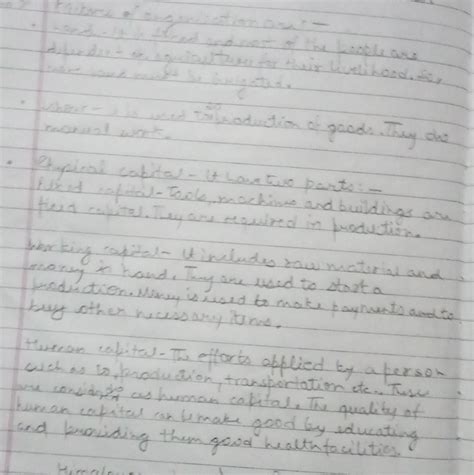 Factors of organisation are : -
Land - It is fixed and most of the people are
dependent on agriculture for their livelihood. So,
more land must be irrigated.
Labour - It is used in production of goods. They do
manual work.
Physical capital - It have two parts : -
Fixed capital - Tools, machines and buildings are
fixed capital. They are required in production.
Working capital - It includes raw material and
money in hand. They are used to start a
production. Money is used to make payments and to
buy other necessary items.
Human capital - The efforts applied by a person
such as to production, transportation etc. These
are considered as human capital. The quality of
human capital can be make good by educating
and providing them good health facilities